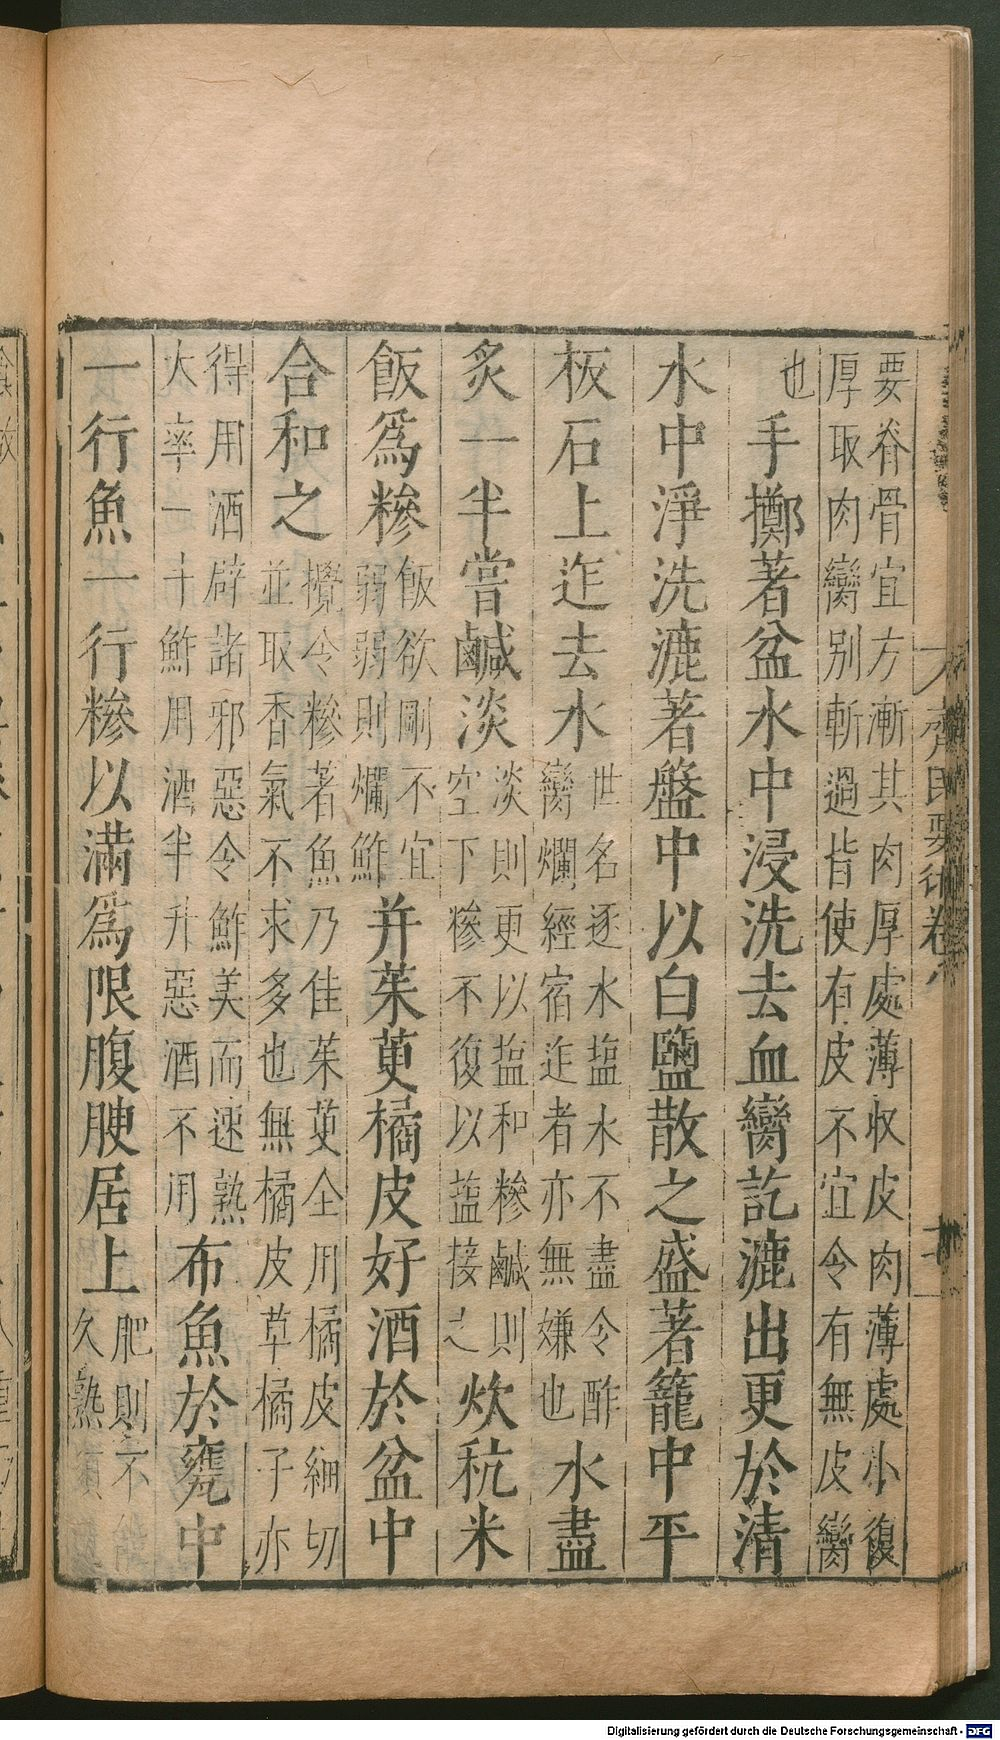 要脊骨宜方漸其肉厚處薄収皮肉薄處小復
厚取肉臠別斬過皆使有皮不宜令有無皮臠
也手擲著盆水中浸洗去血臠訖漉出更於清
水中淨洗漉著盤中以白鹽散之盛著籠中平
板石上迮去水
世名逐水塩水不盡令酢
臠爛經宿迮者亦無嫌也
水盡
炙一半嘗鹹淡
淡則更以塩和糝鹹則
空下糝不復以塩接之
炊秔米
飯爲糝
飯欲剛不宜
弱弱則爛鮓
并茱萸橘皮好酒於盆中
合和之
攪令糝著魚乃佳茱萸全用橘皮細切
並取香氣不求多也無橘皮草橘子亦
得用酒辟諸邪惡令鮓美而速熟
大率一斗鮓用酒半升惡酒不用
布魚於甕中
一行魚一行糝以滿爲限腹腴居上
肥則不
久熟須
齊民要術卷八
Digitalisierung gefördert durch die Deutsche Forschungsgemeinschaft - DFG